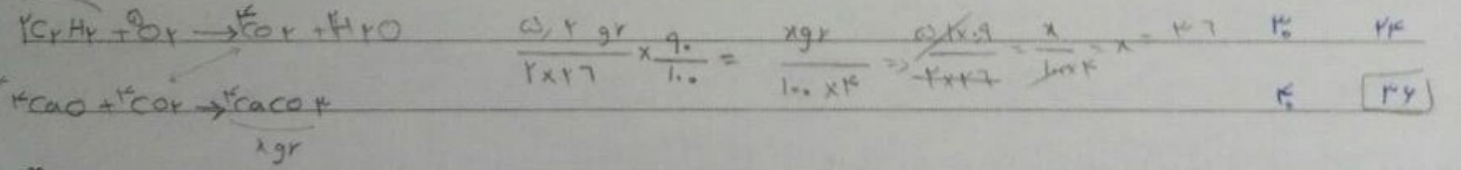 ۲C۲H۲ + ۵O۲ → ۴CO۲ + ۲H۲O   ۵,۲ gr / ۲×۲۶ × ۹۰ / ۱۰۰ = x gr / ۱۰۰×۴ ⇒ ۵,۲×۹ / ۲×۲۶ = x / ۱۰۰×۴ = x = ۳۶
۴CaO + ۴CO۲ → ۴CaCO۳   ۳۶
x gr